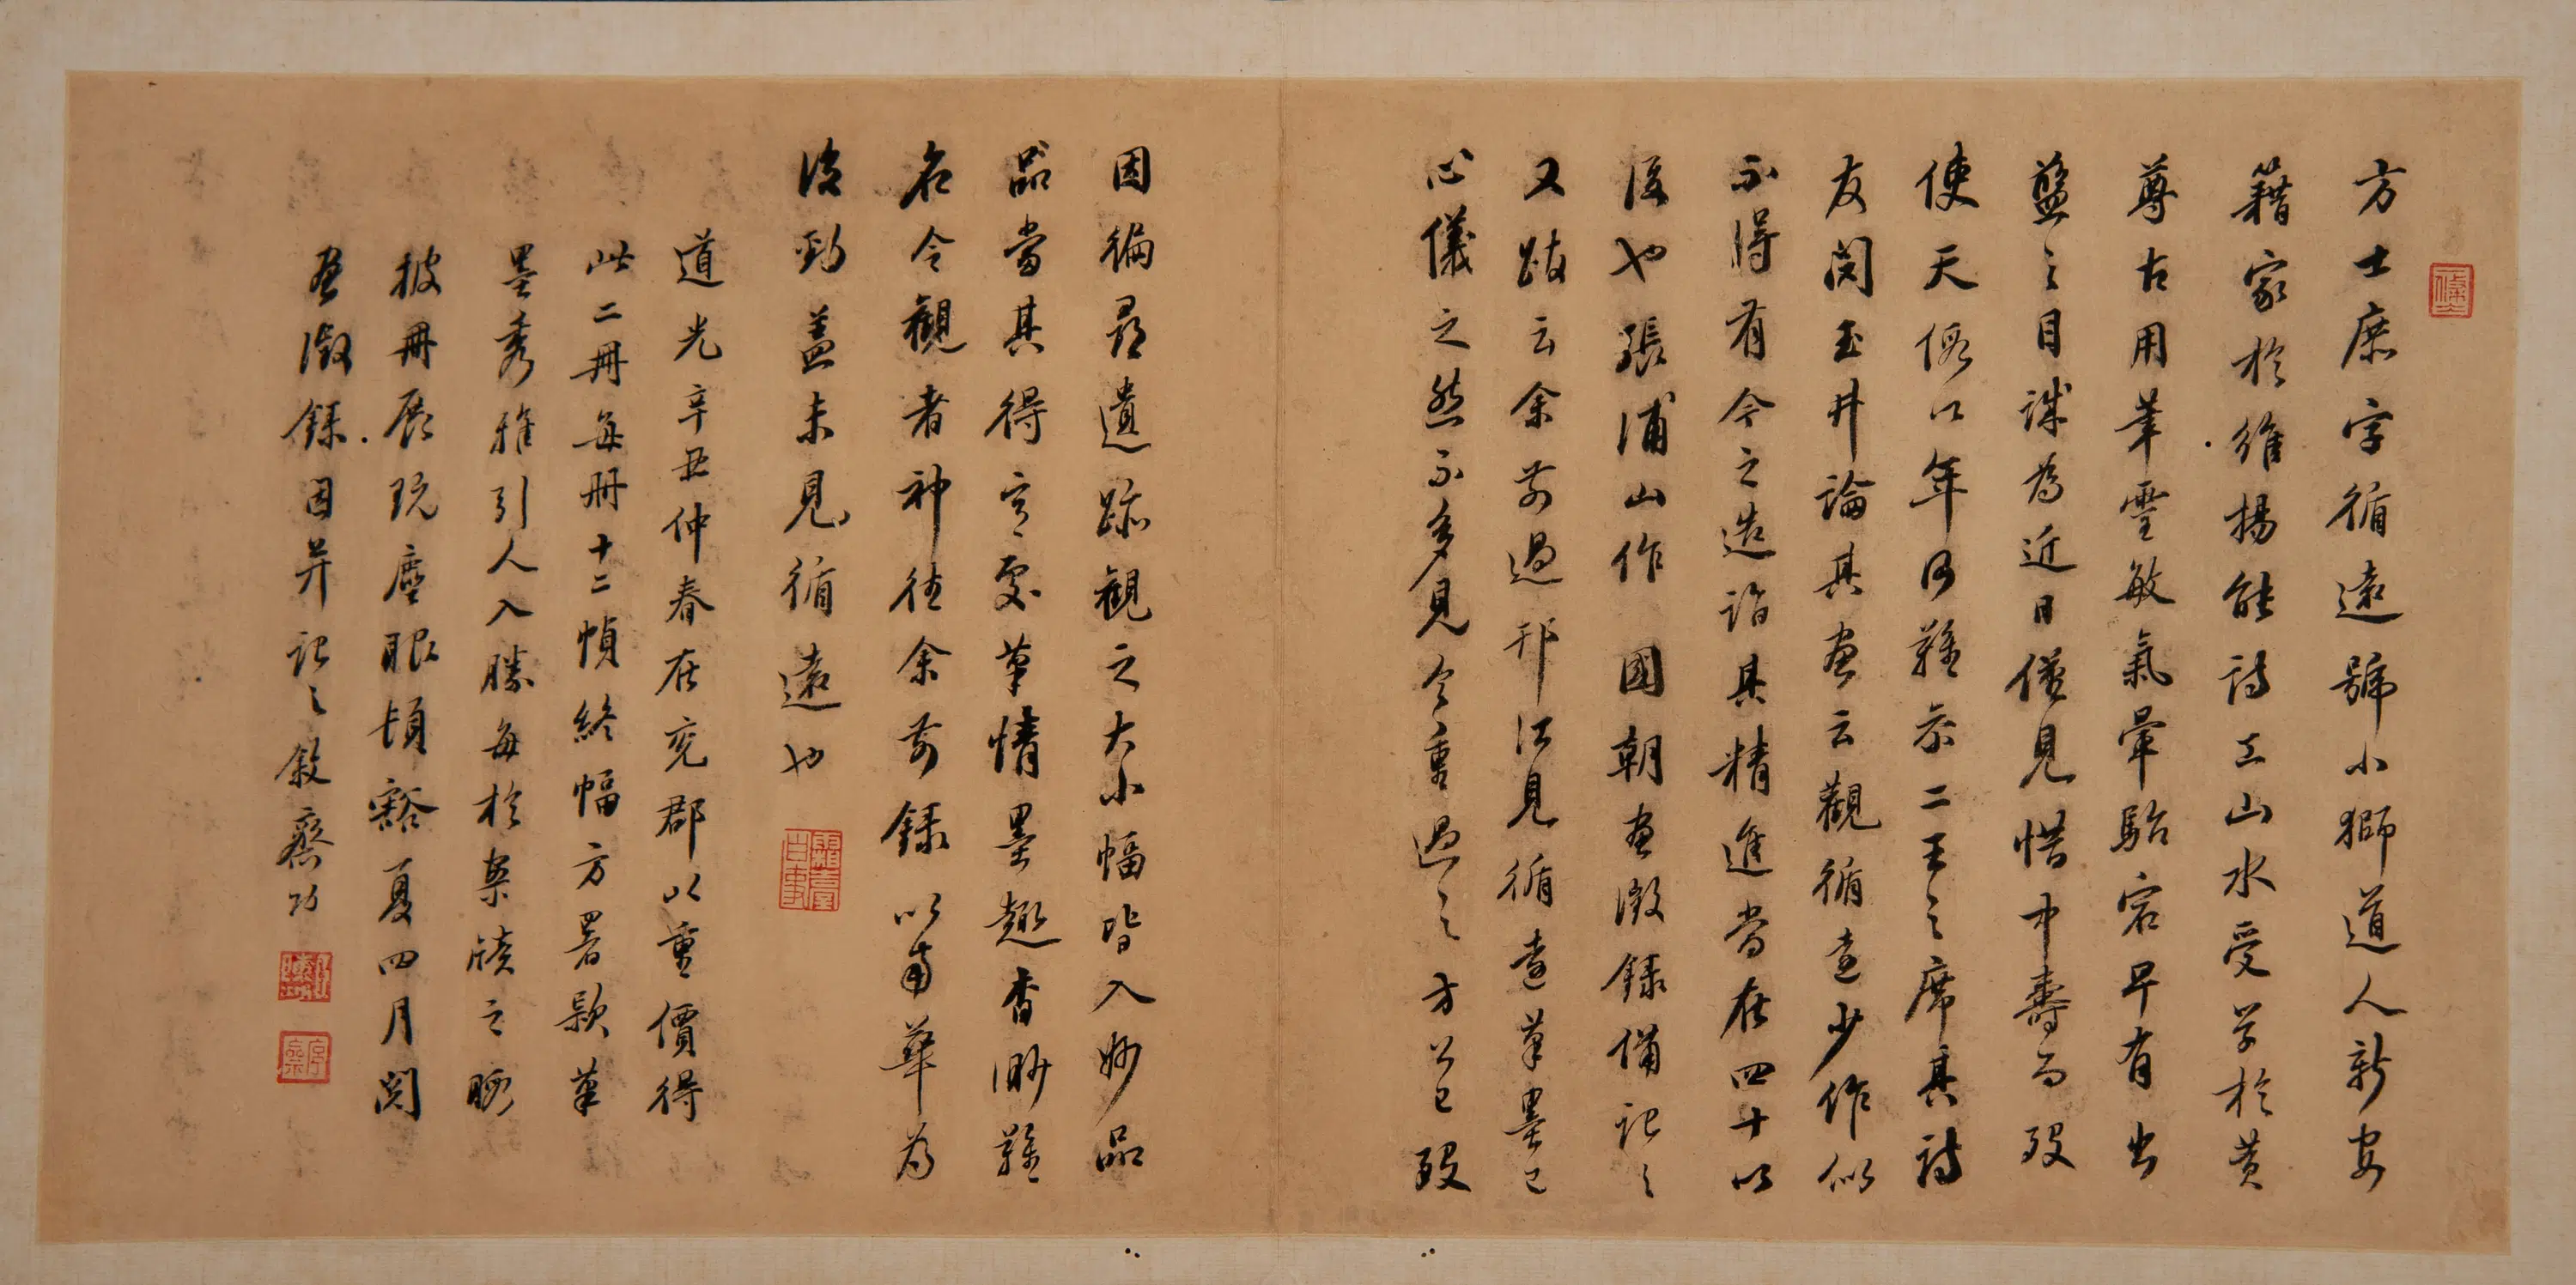 方士庶字循遠號小獅道人新安
籍家於維揚能詩工山水受學於黃
尊古用筆靈敏氣暈駘宕早有出
藍之目誠為近日僅見惜中壽而歿
使天假以年何難參二王之席其詩
友閔玉井論其畫云觀循遠少作似
不得有今之造詣其精進當在四十以
後也張浦山作 國朝畫徵錄備記之
又跋云余前過邗江見循遠筆墨已
心儀之然不多見今重過之方公已歿
因徧尋遺跡觀之大小幅皆入妙品
品當其得意處筆情墨趣杳眇難
名令觀者神往余前錄以南華為
後勁蓋未見循遠也
道光辛丑仲春在兗郡以重價得
此二冊每冊十二幀終幅方署款筆
墨秀雅引人入勝每於案牘之暇
披冊展玩塵眼頓豁夏四月閱
畫徵錄因并記之敘齋